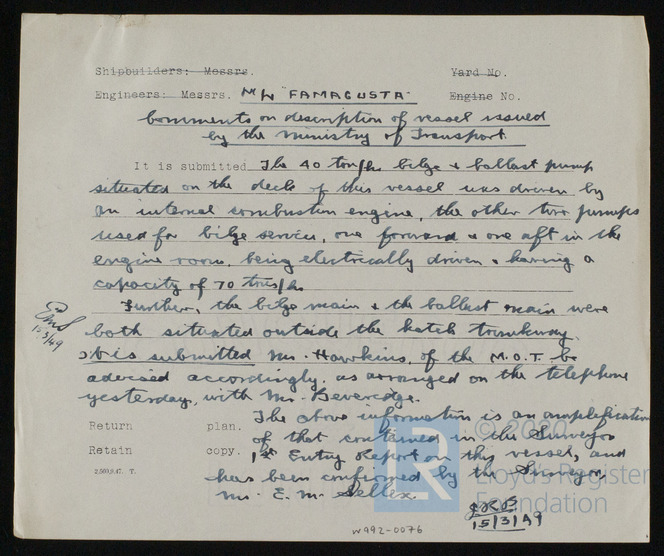 Shipbuilders: Messrs. Yard No.
Engineers: Messrs. M/V "FAMAGUSTA" Engine No.
Comments on description of vessel issued
by the Ministry of Transport.
It is submitted The 40 tons/hr bilge & ballast pump
situated on the deck of this vessel was driven by
an internal combustion engine, the other two pumps
used for bilge service, one forward & one aft in the
engine room, being electrically driven & having a
capacity of 70 tons/hr
Further, the bilge main & the ballast main were
both situated outside the hatch trunkway.
15/3/49
It is submitted Mr. Hawkins, of the M.O.T. be
advised accordingly, as arranged on the telephone
yesterday, with Mr. Beveridge.
The above information is an amplification
Return plan.
of that contained in the Surveyor
Retain copy.
1st Entry Report on this vessel, and
2,500.9.47. T.
has been confirmed by the Surveyor,
Mr. E. M. Sellex.
15/3/49
W992-0076
© 2020
LR
Lloyd's Register
Foundation